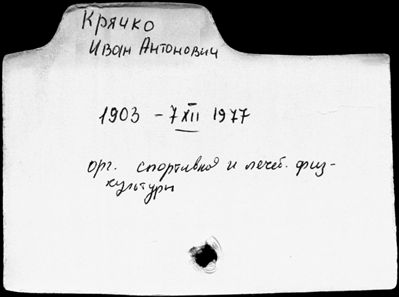 Крячко
Иван Антонович
1903 – 7 XII 1977
орг. спортивной и лечеб. физ-
культуры